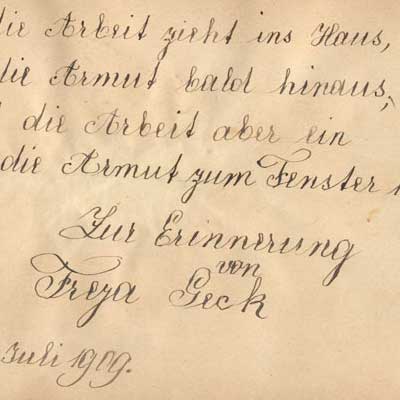 die Arbeit zieht ins Haus,
die Armut bald hinaus;
die Arbeit aber ein
die Armut zum Fenster
Zur Erinnerung
von
Freza Geck
Juli 1909.